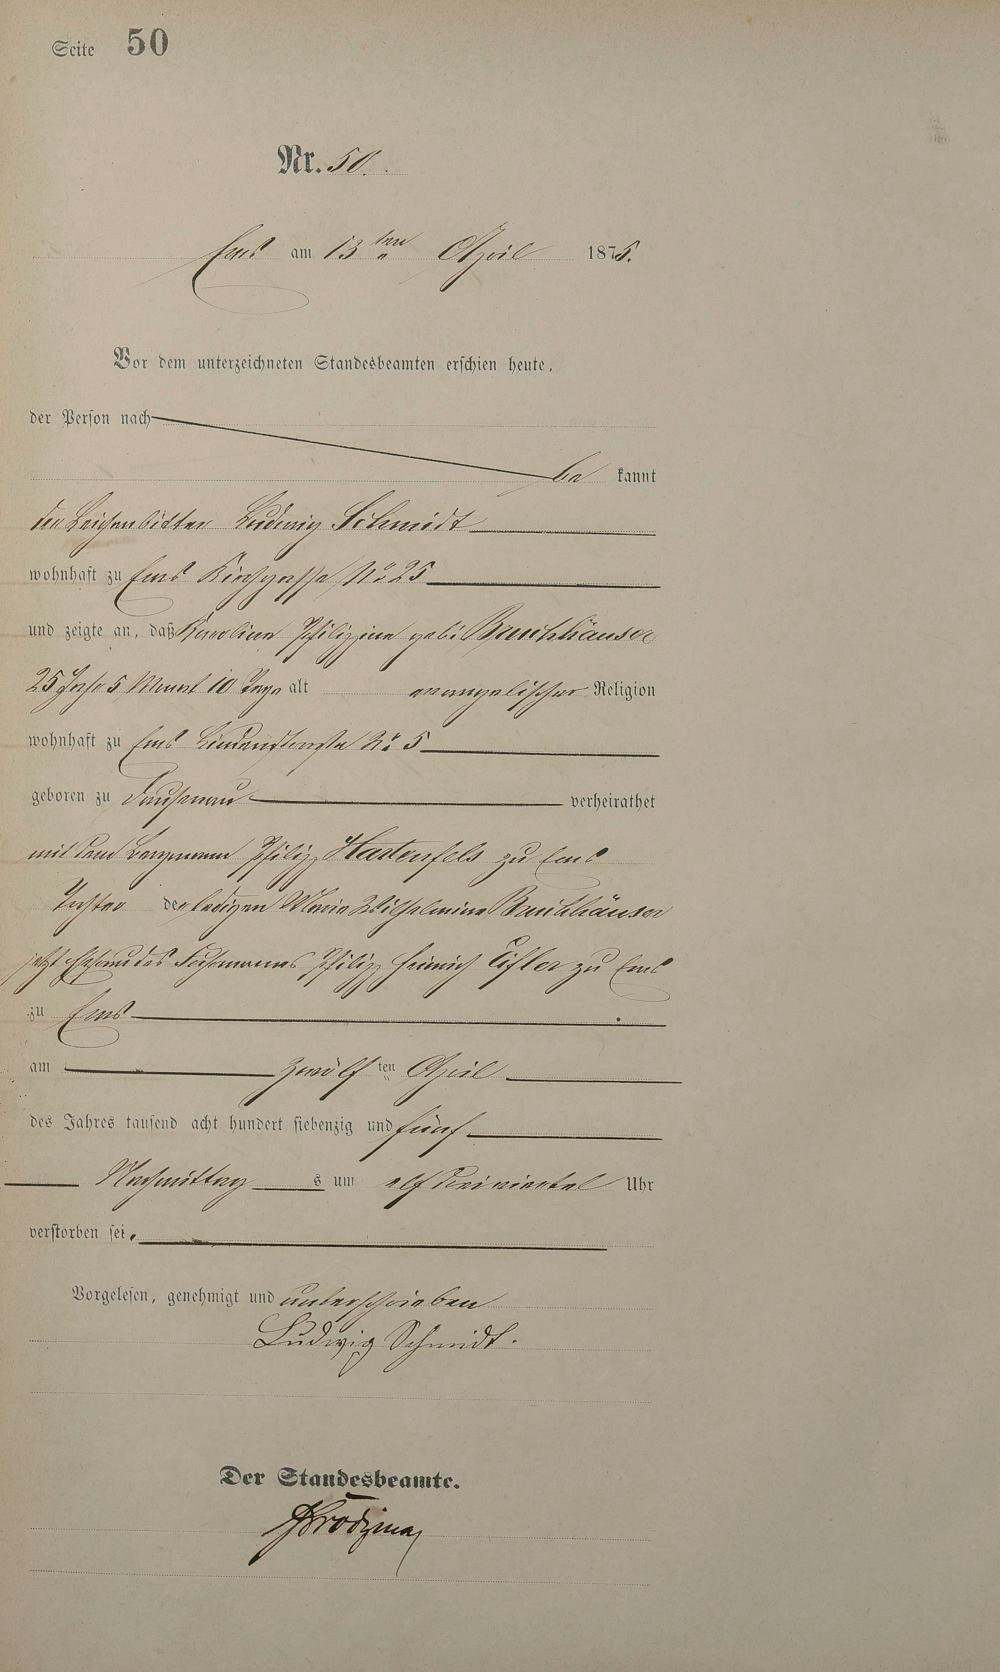 Seite 50
Nr. 50.
Ems am 13ten April 1875.
Vor dem unterzeichneten Standesbeamten erschien heute,
der Person nach
be kannt
der Leichenbitter Ludwig Schmidt
wohnhaft zu Ems Kirchgasse No 25
und zeigte an, daß Karoline Philippine geb. Bruchhäuser
25 Jahr 5 Monat 10 Tage alt evangelischer Religion
wohnhaft zu Ems Lindenstraße No 5
geboren zu Dausenau verheirathet
mit dem Bergmann Philipp Hartenfels zu Ems
Tochter der ledigen Marie Wilhelmine Bruchhäuser
jetzt Ehefrau des Fuhrmannes Philipp Heinrich zu Ems
zu Ems
am zwölf ten April
des Jahres tausend acht hundert siebenzig und fünf
Nachmittag s um elf dreiviertel Uhr
verstorben sei.
Vorgelesen, genehmigt und unterschrieben
Ludwig Schmidt.
Der Standesbeamte.